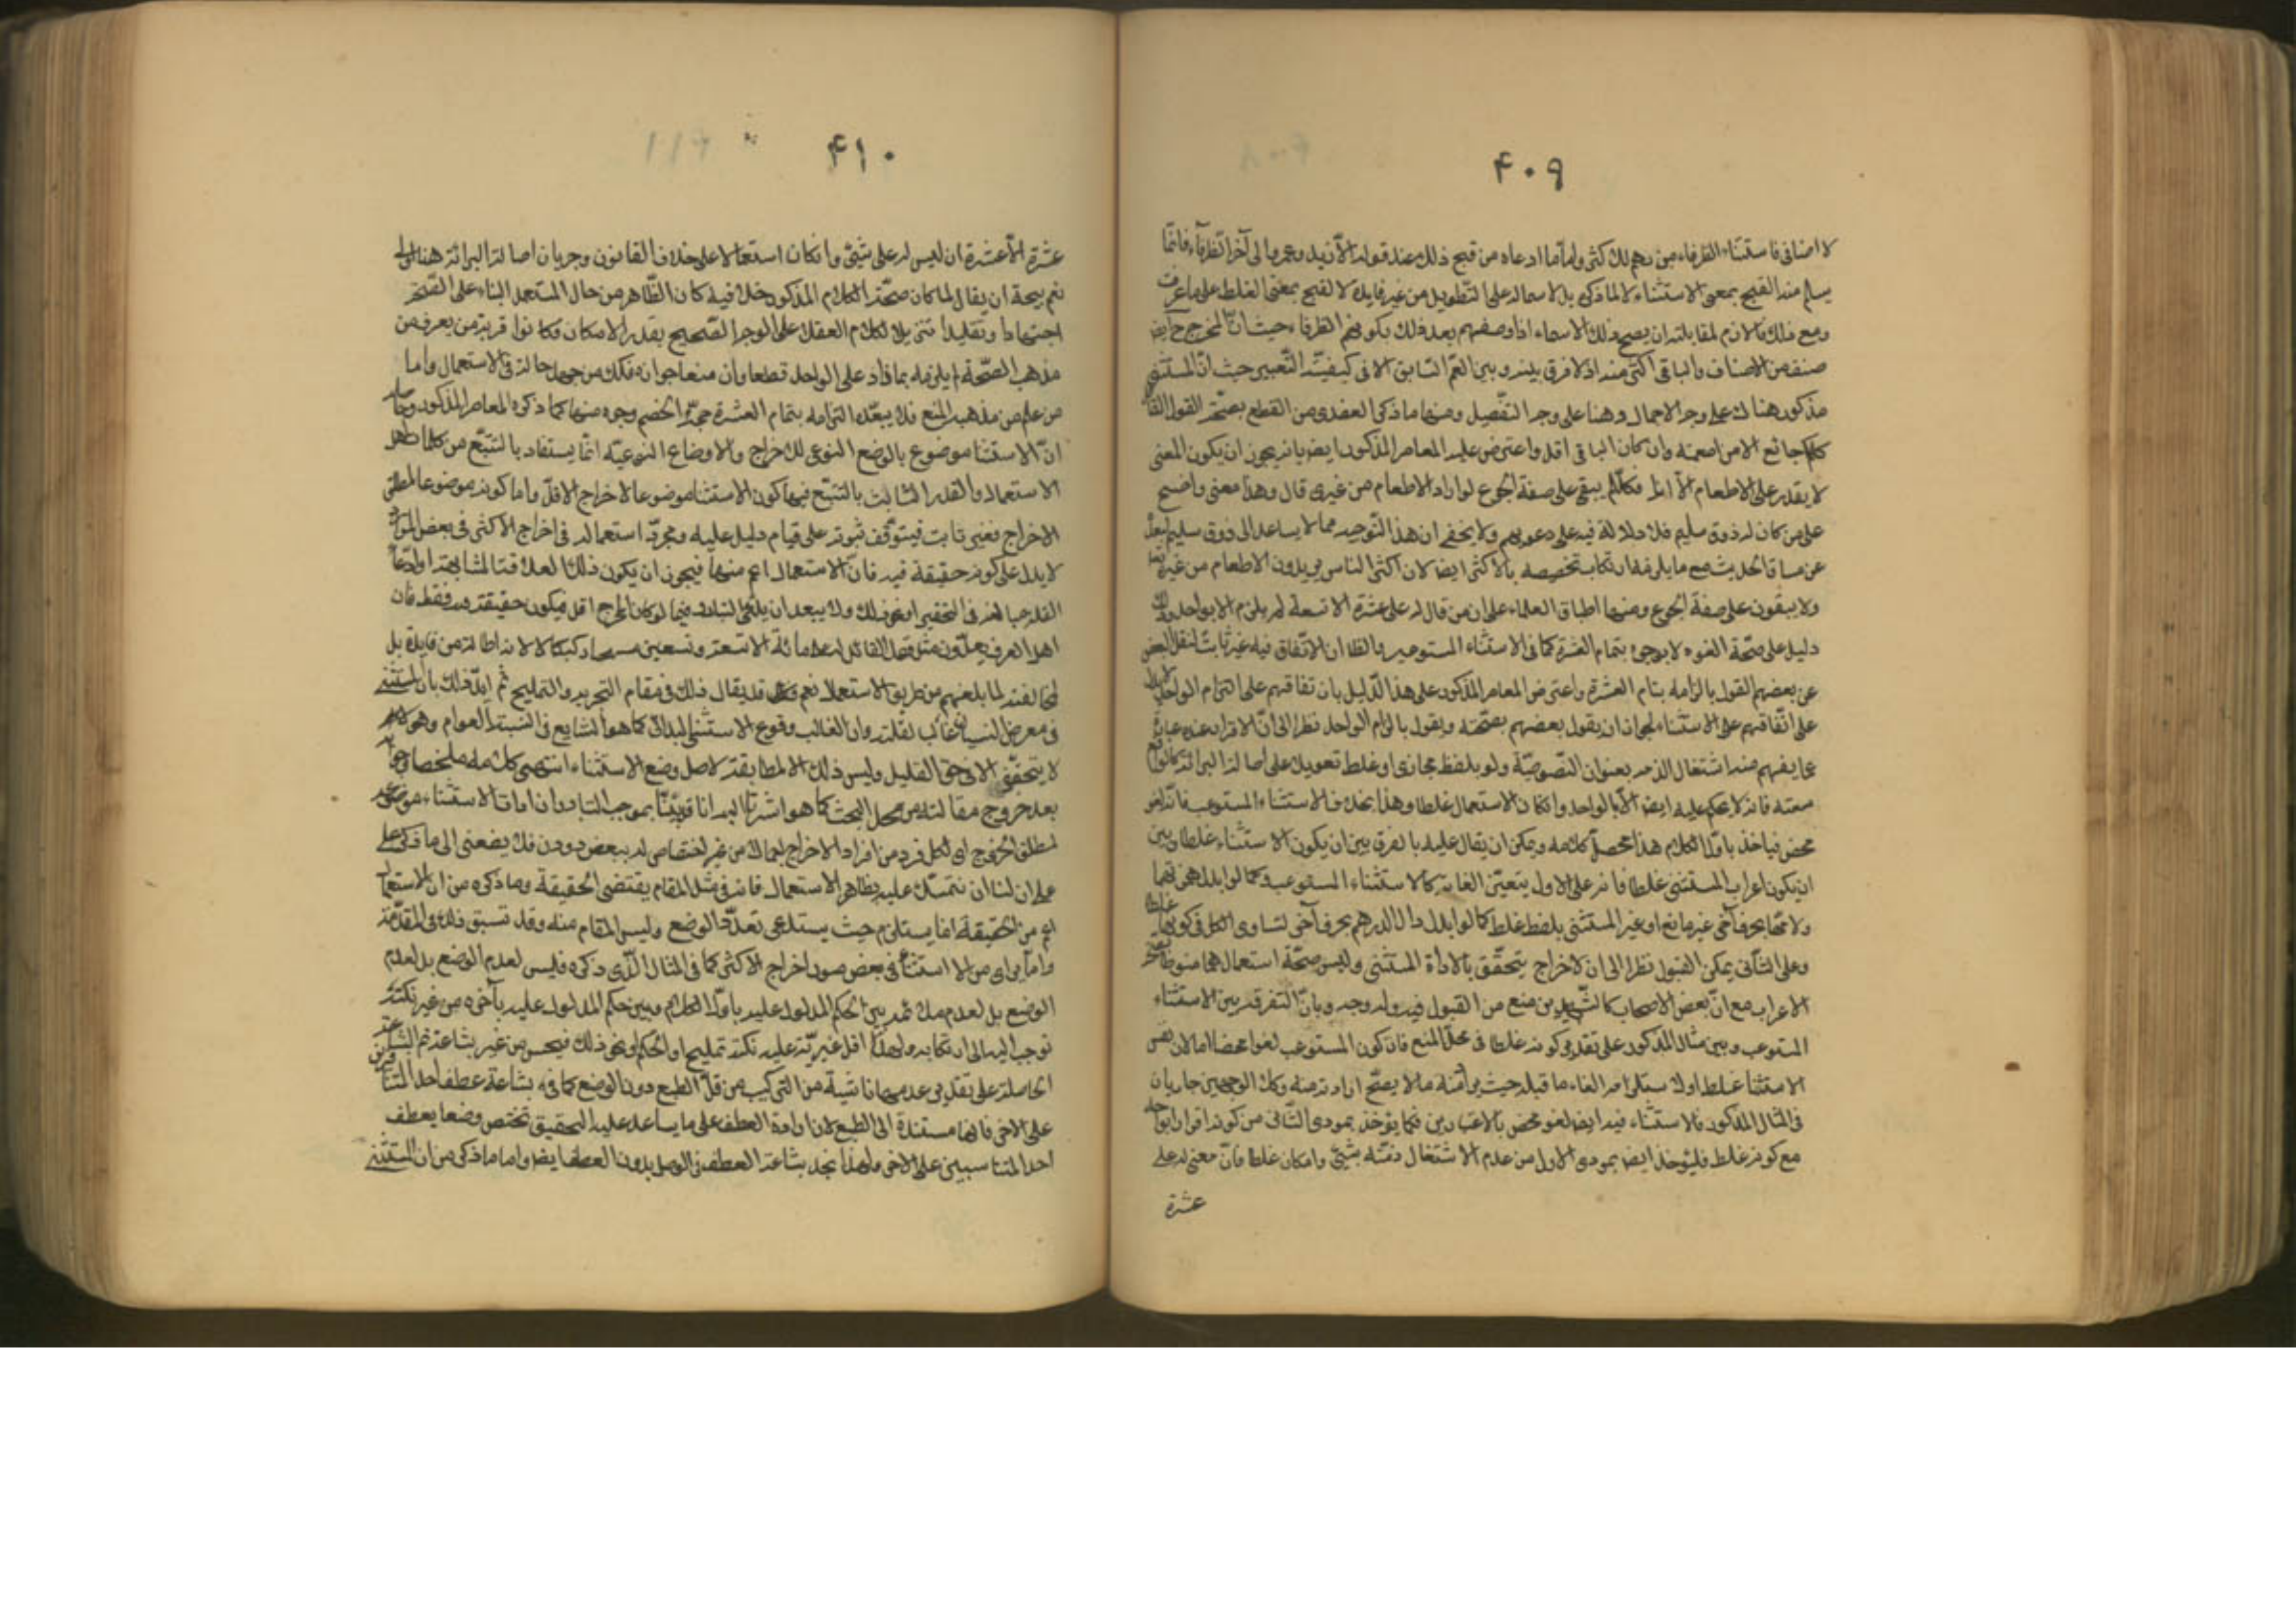 ۴۰۹
لا اضافى فاستثناء الظرفاء من رحم لك كثى واما ما ادعاه من قبح ذلك عند قوله الا زيد وعمروا الى آخر الظرفاء فانما
يسلم منه القبح بمعنى الاستثناء لا لما ذكى بل لاشماله على التطويل من غير فايدة لا لقبح بمعنى الغلط على ما عرفت
ومع ذلك فاللازم لمقابلته ان يصح ذلك الاسماء اذا وصفهم بعد ذلك بكونهم الظرفاء حيث ان المخرج ح ايض
صنف من الاصناف والباقى اكثى منه اذ لا فرق بينه وبين القم السابق الا فى كيفية التعبير حيث ان المستثنى
مذكور هناك على وجه الاجمال وهنا على وجه التفصيل ومنها ما ذكى العضدى من القطع بصحة القول القائل
كلكم جائع الا من اطعمته وان كان الباقى اقل واعترض عليه المعاصر المذكور ايض بانه يجوز ان يكون المعنى
لا يقدر على الاطعام الا انا فكلكم يبقى على صفة الجوع لو اراد الاطعام من غيرى قال وهذا معنى واضح
على من كان له ذوق سليم فلا دلالة فيه على دعويهم ولا يخفى ان هذا التوجيه مما لا يساعد الى ذوق سليم لبعد
عن مساق الحديث مع ما يلزمه ارتكاب تخصيصه بالاكثى ايض لان اكثى الناس يريدون الاطعام من غيره تعا
ولا يبقون على صفة الجوع ومنها اطباق العلماء على ان من قال له على عشرة الا تسعة لم يلزم الا بواحد وذلك
دليل على صحة العود لا بوجوب بتمام العشرة كما فى الاستثناء المستوعب والظا ان الاتفاق فيه غير ثابت لنقل البعض
عن بعضهم القول بالزامه بتمام العشرة واعترض المعاصر المذكور على هذا الدليل بان اتفاقهم على التزام الواحد لا يدل
على اتفاقهم على الاستثناء لجواز ان يقول بعضهم بصحته ويقول بالزام الواحد نظرا الى ان الاقرار عنده عبارة
عما يفهم منه اشتغال الذمه بعنوان النصوصية ولو بلفظ مجازى او غلط تعويلا على اصالة البرائة كما لو قع
سعته فانه لا يحكم عليه ايض الا بالواحد وان كان الاستعمال غلطا وهذا بخلاف الاستثناء المستوعب فانه لغو
محض فياخذ باول الكلام هذا محصل كلامه ويمكن ان يقال عليه بالفرق بين ان يكون الاستثناء غلطا وبين
ان يكون اعراب المستثنى غلطا فانه على الاول يتعين الغائه كالاستثناء المستوعب وكما لو ابدل همزتهما
ولامها بحرف آخى غير مانع او غير المستثنى بلفظ غلط كما لو ابدل دال الدرهم بحرف آخى لتساوى الكل فى كونها غلطا
وعلى الثانى يمكن القبول نظرا الى ان لاخراج يتحقق بالاداة المستثنى وليس صحة استعمالهما منوطا بصحة
الاعراب مع ان بعض الاصحاب كالشهيدين منع من القبول فيه وله وجه وبان التفرقة بين الاستثناء
المستوعب وبين مثال المذكور على تقدير كونه غلطا فى محل المنع فان كون المستوعب لغوا محضا اما لان نفس
الاستثناء غلط او لاستلزامه الغاء ما قبله حيث يراد منه ما لا يصح ارادته منه وكلا الوجهين جاريان
فى المثال المذكور فالاستثناء فيه ايض لغو محض بالاعتبارين فكما يؤخذ بمودى الثانى من كونه اقرارا بواحد
مع كونه غلط فليؤخذ ايضا بمودى الاول من عدم الاشتغال ذمته بشيئ وان كان غلطا فان معنى له على
عشرة
۴۱۰
عشرة الا عشرة ان ليس له على شيئ وان كان استعمالا على خلاف القانون وجريان اصالة البرائة هنا اولى
نعم يتجه ان يقال لما كان صحة الكلام المذكور خلافية كان الظاهر من حال المستعمل البناء على الصحة
اجتهادا وتقليدا تنزيلا لكلام العقلاء على الوجه الصحيح بقدر الامكان فكانوا قرينة من يعرف من
مذهب الصحة يلزمه بما زاد على الواحد قطعا وان منعا جوازه فكك من جهل حاله فى الاستعمال واما
من علم من مذهب المنع فلا يبعد التزامه بتمام العشرة ومنها كما ذكره المعاصر المذكور وحاصله
ان الاستثنا موضوع بالوضع النوعى للاخراج والاوضاع النوعية انما يستفاد بالتتبع من كلمات اهل
الاستعمال والقدر الثابت بالتتبع فيها كون الاستثنا موضوعا لاخراج الاقل واما كونه موضوعا لمطلق
الاخراج فغير ثابت فيتوقف ثبوته على قيام دليل عليه ومجرد استعماله فى اخراج الاكثى فى بعض الموارد
لا يدل على كونه حقيقة فيه فان الاستعمال اعم منها فيجوز ان يكون ذلك لعلاقة المشابهة او ادعاء
القلة مبالغة فى التحقير او نحو ذلك ولا يبعد ان يدعى التبادر فيما لو كان المخرج اقل فيكون حقيقة فيه فقط فان
اهل العرف يعدون مثل قول القائل له على مائة الا تسعة وتسعين مستهجنا ركيكا لا لانه اطالة من فايدة بل
لمخالفته لما بلغهم من طريق الاستعمال نعم قد يقال ذلك فى مقام التحرير والتمليح ثم ايد ذلك بان المستثنى
فى معرض النسيان غالب لقلته وان الغالب وقوع الاستثنى البدائى كما هو الشايع فى النسبة العوام وهو
لا يتحقق الا فى حق القليل وليس ذلك الا لمطابقة لاصل وضع الاستثناء انتهى كلامه ملخصا وجوابه
بعد خروج مقالته من محل البحث كما هو اشرنا اليه انا قد بينا بموجب التبادر ان ادات الاستثناء موضوعة
لمطلق الخروج اى لكل فرد من افراد الاخراج من غير اختصاص له ببعض دون فلا يضعفى الى ما ذكى على
على ان لنا ان نتمسك عليه بظاهر الاستعمال فانه فى مثل المقام يقتضى الحقيقة وما ذكره من ان الاستعمال
اعم من الحقيقة انما يستلزم حيث يستدعى تعدد الوضع وليس المقام منه وقد تسبق ذلك فى المقدمة
واما ما يراى من استبشاع فى بعض صور اخراج الاكثى كما فى المثال الذى ذكره فليس لعدم الوضع بل لعدم
الوضع بل لعدم ملائمة بين الحكم المدلول عليه باول الكلام وبين حكم المدلول عليه بآخره من غير نكتة
توجب اليه الى ارتكابه ولهذا اقل عبرية عليه نكتة تمليح او الحكم او نحو ذلك فيحسن من غير بشاعة ثم البشاعة
الحاصلة على تقدير عدمها ناشية من التركيب من قل الطبع دون الوضع كما فى بشاعة عطف احد المتنافرين
على الاخى فانها مستندة الى الطبع لان اداة العطف على ما يساعد عليه التحقيق تختص وضعا يعطف
احد المتناسبين على الاخى ولهذا نجد بشاعة العطف فى الوصل بدون العطف ايض واما ما ذكى من ان المستثنى